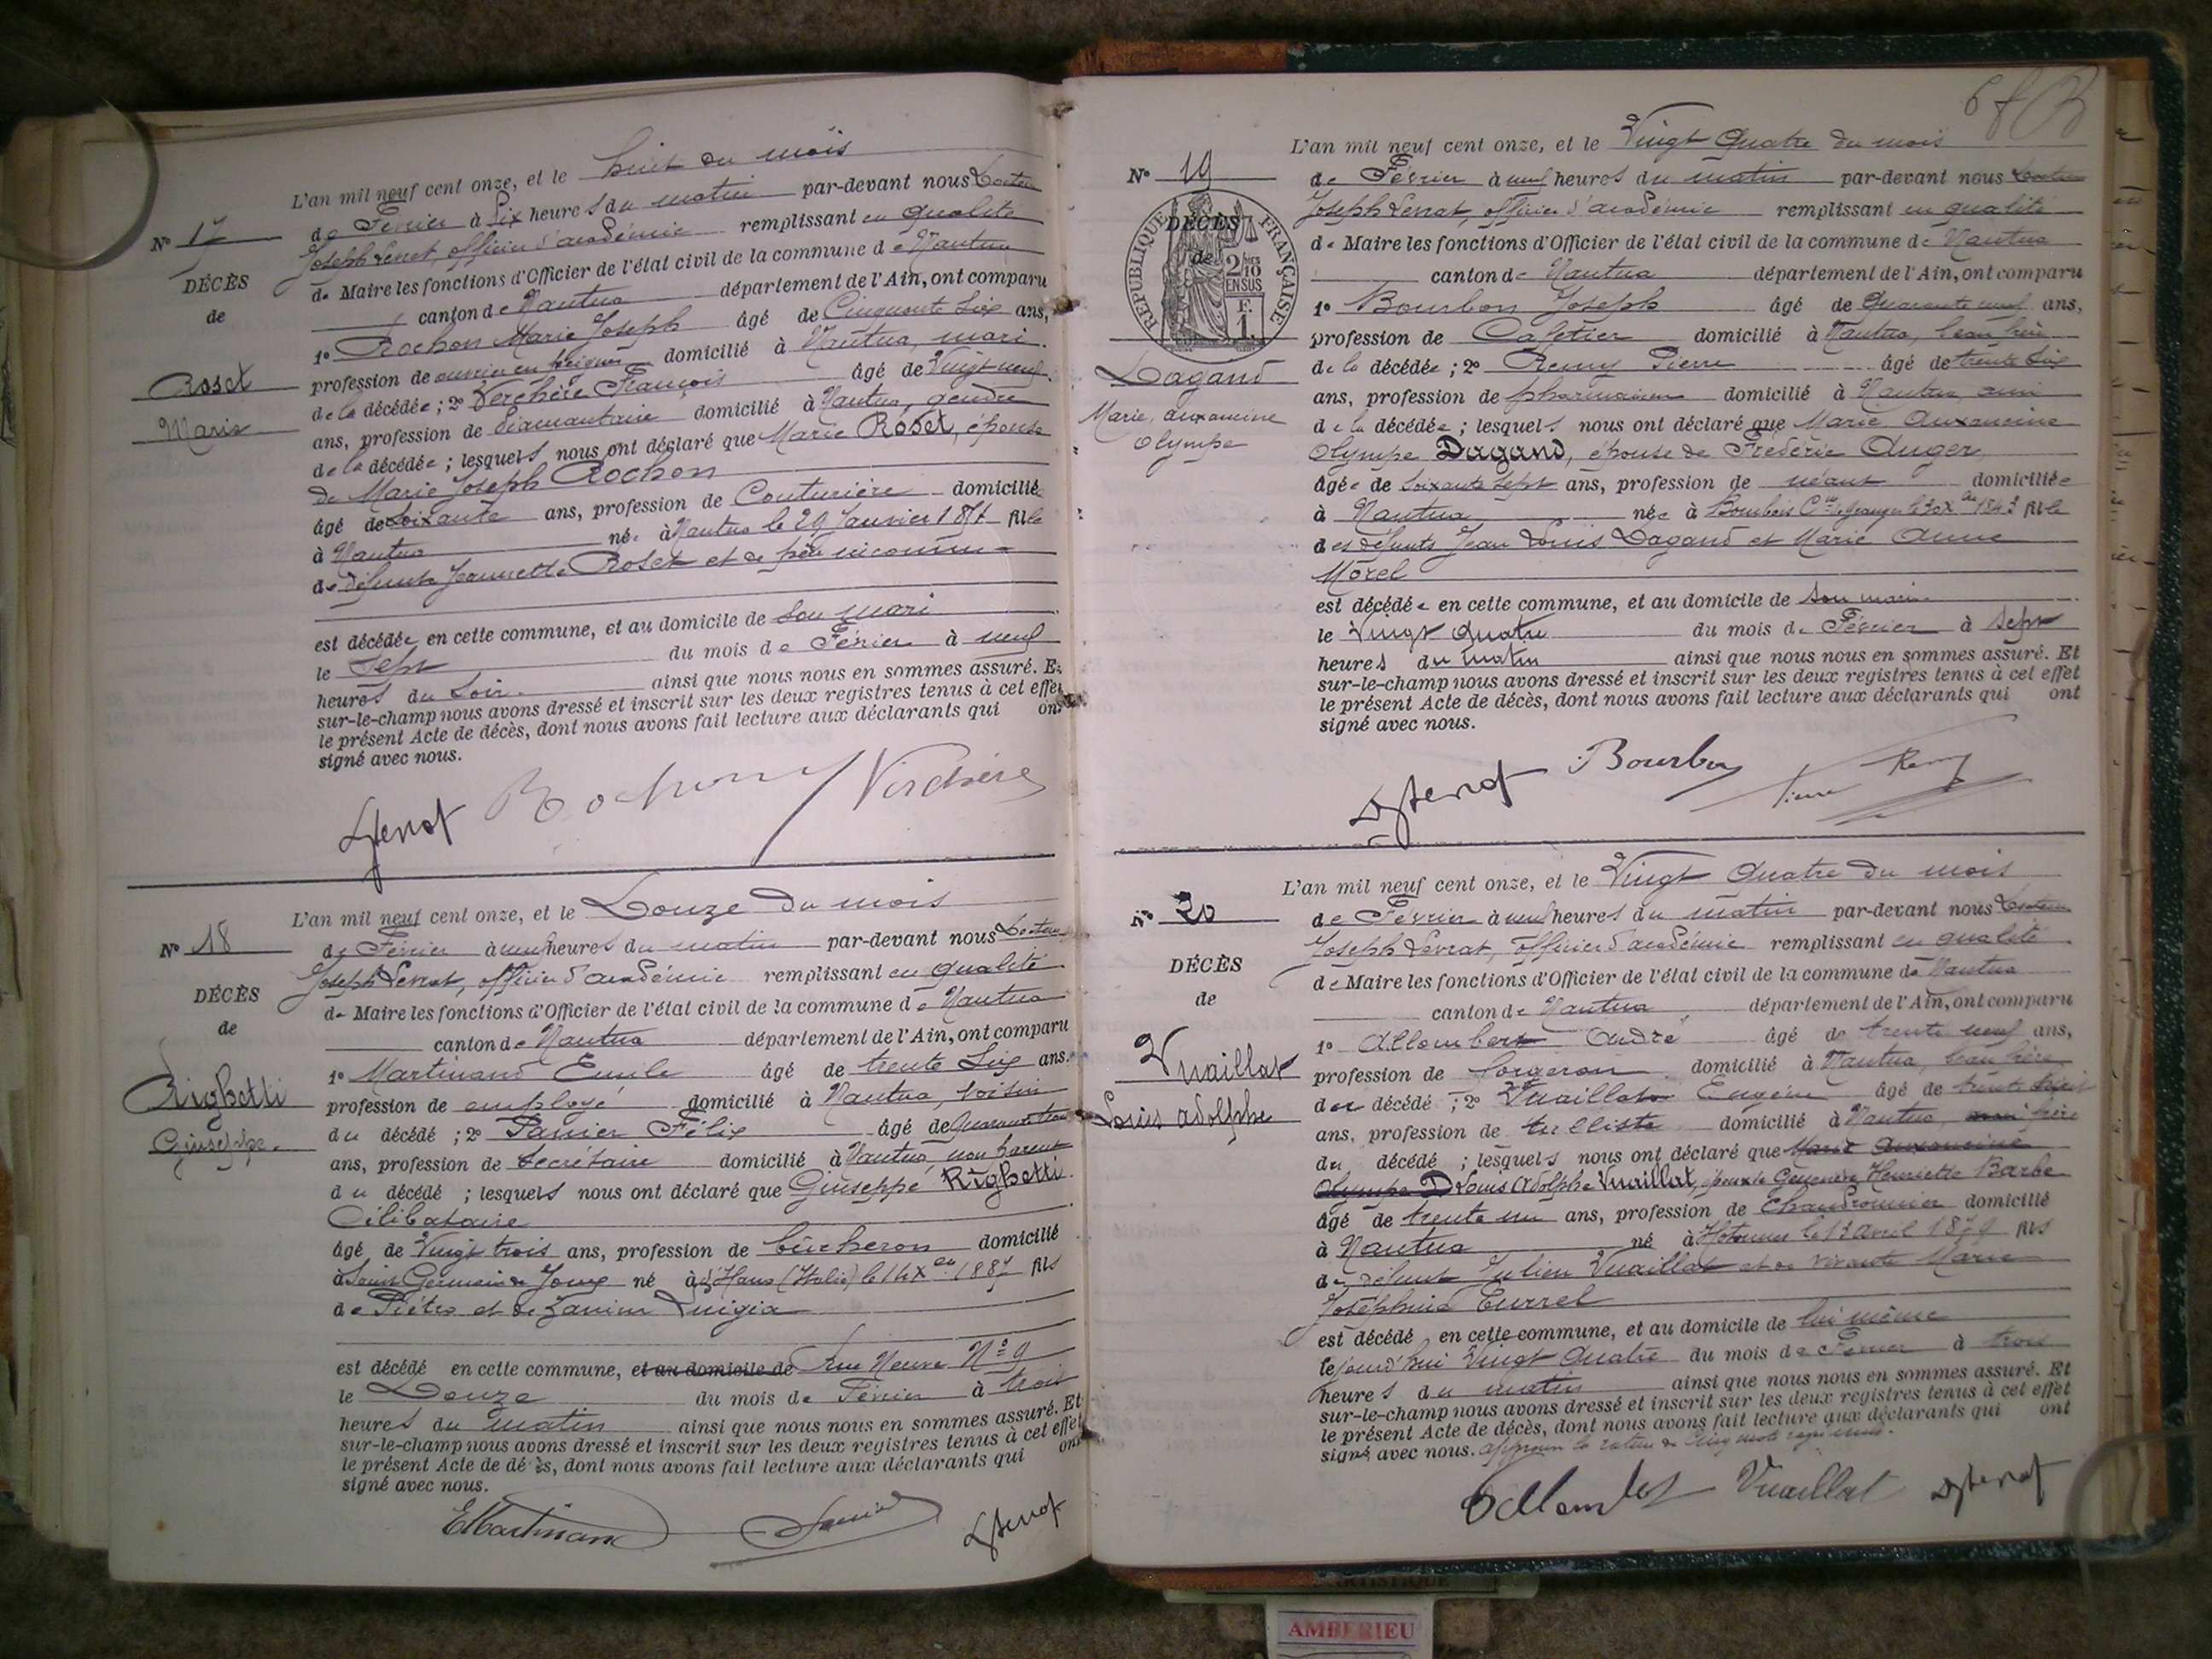 L'an mil neuf cent onze, et le huit du mois
de Février à dix heures du matin par-devant nous Docteur
Joseph Levrat, officier d'académie remplissant en qualité
de Maire les fonctions d'Officier de l'état civil de la commune de Nantua
canton de Nantua département de l'Ain, ont comparu
1º Rochon Marie Joseph âgé de Cinquante six ans,
profession de ouvrier en peignes domicilié à Nantua, mari
de la décédée ; 2º Verchère François âgé de Vingt neuf
ans, profession de diamantaire domicilié à Nantua, gendre
de la décédée ; lesquels nous ont déclaré que Marie Roset, épouse
de Marie Joseph Rochon
âgé de soixante ans, profession de Couturière domiciliée
à Nantua née à Nantua le 29 Janvier fille
de défunte Jeannette Roset et de père inconnu
est décédée en cette commune, et au domicile de son mari
le sept du mois de Février à neuf
heures du soir. ainsi que nous nous en sommes assuré. Et
sur-le-champ nous avons dressé et inscrit sur les deux registres tenus à cet effet
le présent Acte de décès, dont nous avons fait lecture aux déclarants qui ont
signé avec nous.
Nº 17
DÉCÈS
de
Roset
Marie
Rochon Verchère
Nº 18
DÉCÈS
de
Righetti
Giuseppe.
L'an mil neuf cent onze, et le Douze du mois
de Février à neuf heures du matin par-devant nous Docteur
Joseph Levrat, officier d'académie remplissant en qualité
de Maire les fonctions d'Officier de l'état civil de la commune de Nantua
canton de Nantua département de l'Ain, ont comparu
1º Martinand Emile âgé de trente six ans.
profession de employé domicilié à Nantua, voisin
du décédé ; 2º Panier Félix âgé de Quarante trois
ans, profession de Secrétaire domicilié à Nantua non parent
du décédé ; lesquels nous ont déclaré que Giuseppe Righetti
Célibataire
âgé de Vingt trois ans, profession de bûcheron domicilié
à Saint Germain de Joux né à (Italie) le 14 Xbre 1887 fils
de Piétro et de Zanini Luigia
est décédé en cette commune, et au domicile de rue Neuve Nº 9
le Douze du mois de Février à trois
heures du matin ainsi que nous nous en sommes assuré. Et
sur-le-champ nous avons dressé et inscrit sur les deux registres tenus à cet effet
le présent Acte de décès, dont nous avons fait lecture aux déclarants qui ont
signé avec nous.
EMartinand
Nº 19
DÉCÈS
de
RÉPUBLIQUE FRANÇAISE
2/10 EN SUS
F. 1.
Dagand
Marie, Auxancine
Olympe
L'an mil neuf cent onze, et le Vingt Quatre du mois
de Février à neuf heures du matin par-devant nous Docteur
Joseph Levrat, officier d'académie remplissant en qualité
de Maire les fonctions d'Officier de l'état civil de la commune de Nantua
canton de Nantua département de l'Ain, ont comparu
1º Bourbon Joseph âgé de Quarante neuf ans,
profession de Cafetier domicilié à Nantua, beau frère
de la décédée ; 2º Remy Pierre âgé de trente six
ans, profession de pharmacien domicilié à Nantua, ami
de la décédée ; lesquels nous ont déclaré que Marie Auxancine
Olympe Dagand, épouse de Frédéric Auger
âgée de soixante sept ans, profession de néant domiciliée
à Nantua née à le 30 Xbre 1843 fille
des défunts Jean Louis Dagand et Marie Anne
Morel
est décédée en cette commune, et au domicile de son mari
le Vingt Quatre du mois de Février à sept
heures du matin ainsi que nous nous en sommes assuré. Et
sur-le-champ nous avons dressé et inscrit sur les deux registres tenus à cet effet
le présent Acte de décès, dont nous avons fait lecture aux déclarants qui ont
signé avec nous.
Bourbon Pierre Remy
Nº 20
DÉCÈS
de
Vuaillat
Louis Adolphe
L'an mil neuf cent onze, et le Vingt Quatre du mois
de Février à neuf heures du matin par-devant nous Docteur
Joseph Levrat, officier d'académie remplissant en qualité
de Maire les fonctions d'Officier de l'état civil de la commune de Nantua
canton de Nantua département de l'Ain, ont comparu
1º Allombert André âgé de trente neuf ans,
profession de forgeron domicilié à Nantua, beau frère
du décédé ; 2º Vuaillat Eugène âgé de trente
ans, profession de tulliste domicilié à Nantua, frère
du décédé ; lesquels nous ont déclaré que Marie Auxancine
Olympe D Louis Adolphe Vuaillat, époux de Geneviève Henriette Barbe
âgé de trente un ans, profession de Chaudronnier domicilié
à Nantua né à Hotonnes le 13 avril 1879 fils
de défunt Julien Vuaillat et de vivante Marie
Joséphine Curvel
est décédé en cette commune, et au domicile de lui même
le jourd'hui Vingt Quatre du mois de Février à trois
heures du matin ainsi que nous nous en sommes assuré. Et
sur-le-champ nous avons dressé et inscrit sur les deux registres tenus à cet effet
le présent Acte de décès, dont nous avons fait lecture aux déclarants qui ont
signé avec nous. approuvé la rature de cinq mots rayés nuls.
Allombert Vuaillat
ARTISTIQUE
AMBERIEU